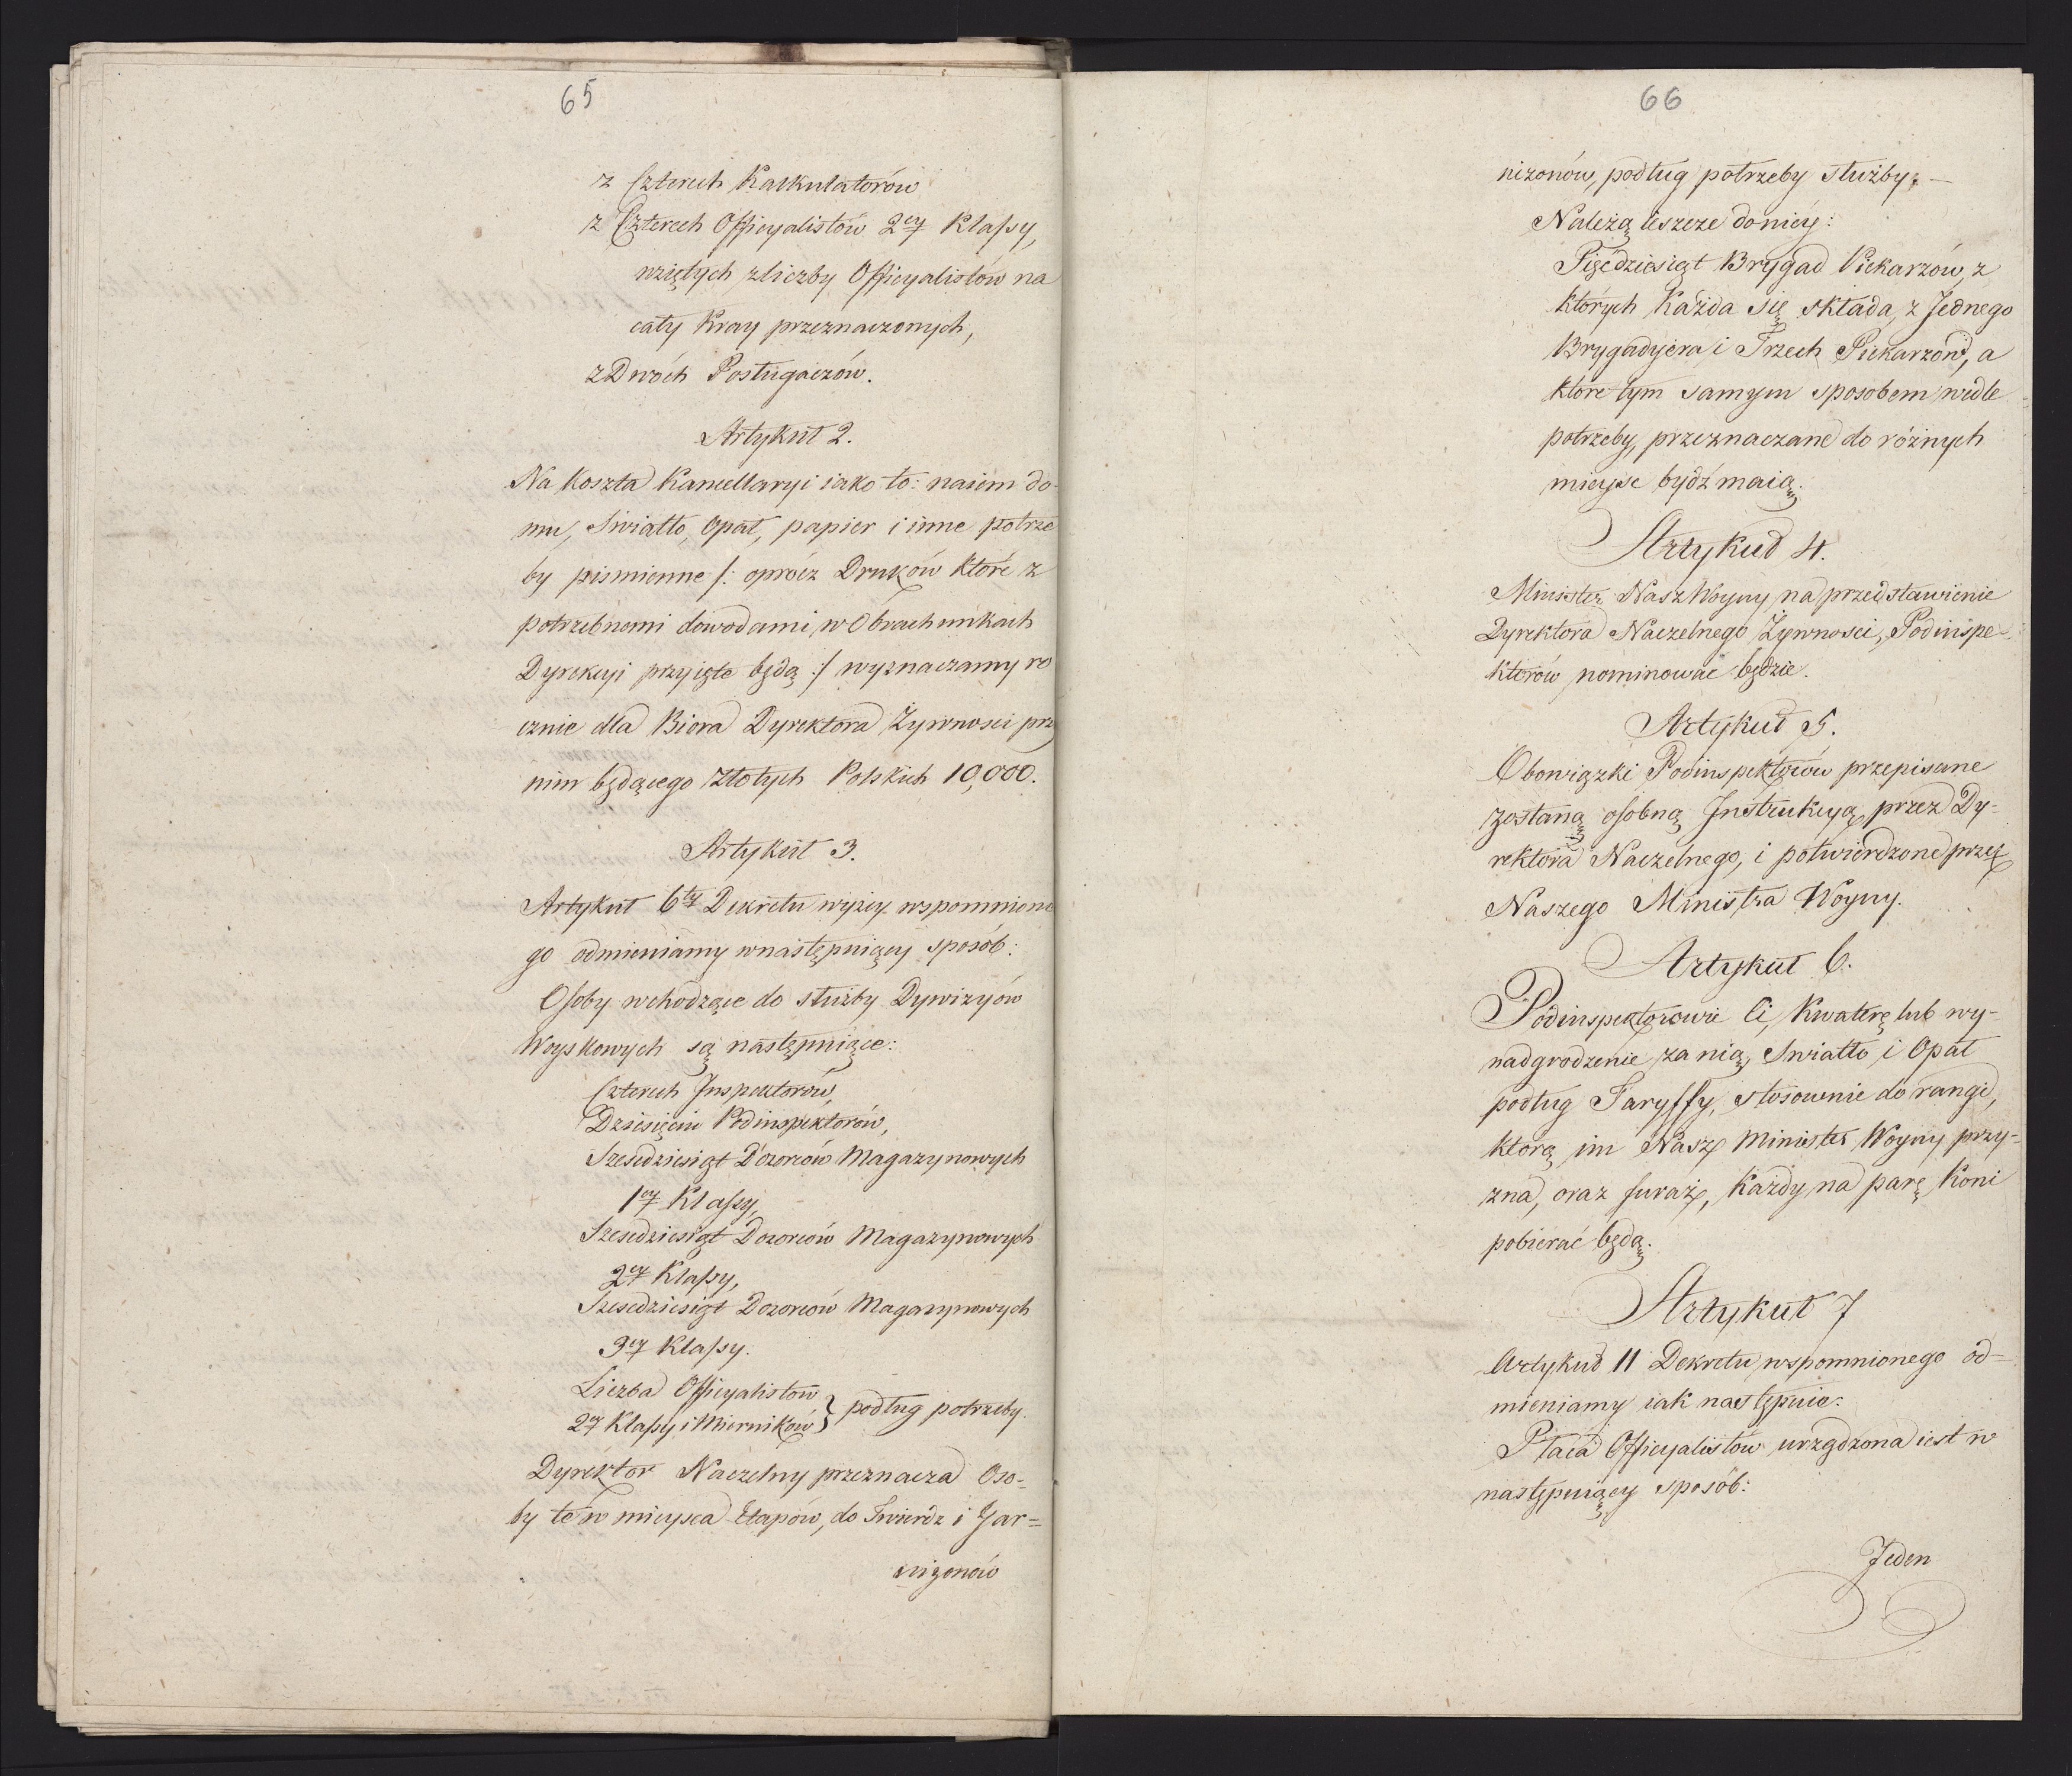 65
z Czterech Kalkulatorów
z Czterech Officyalistów 2ey Klassy,
wziętych zliczby Officyalistów na
cały Kray przeznaczonych,
z Dwóch Posługaczów.
Artykuł 2.
Na Koszta Kancellaryi iako to: naiem do-
mu, Swiatło, Opał, papier i inne potrze
by pismienne /: oprócz Druków które z
potrzebnemi dowodami w Obrachunkach
Dyrekcyi przyięte będą :/ wyznaczamy ro
cznie dla Biora Dyrektora Żywnosci przy
nim będącego Złotych Polskich 10,000.
Artykuł 3.
Artykuł 6ty Dekretu wyżey wspomnione
go odmieniamy wnastępuiący sposób:
Osoby wchodzące do służby Dywizyów
Woyskowych są następuiące:
Czterech Inspektorów,
Dziesięciu Podinspektorów,
Szesdziesiąt Dozorców Magazynowych
1ey Klassy,
Szesdziesiąt Dozorców Magazynowych
2ey Klassy,
Szesdziesiąt Dozorców Magazynowych
3ey Klassy.
Liczba Officyalistów
2ey Klassy i Mierników } podług potrzeby.
Dyrektor Naczelny przeznacza Oso-
by te w mieysca Etapów, do Twierdz i Gar=
nizonów
66
nizonów, podług potrzeby służby, —
Należą ieszcze do niéy:
Pięćdziesiąt Brygad Piekarzów, z
których Każda się składa, z Jednego
Brygadyera i Trzech Piekarzów, a
które tym samym sposobem wedle
potrzeby, przeznaczane do różnych
mieysc bydź maią.
Artykuł 4.
Minister Nasz Woyny na przedstawienie
Dyrektora Naczelnego Żywnosci, Podinspe-
ktorów nominować będzie.
Artykuł 5.
Obowiązki Podinspektorów przepisane
zostaną osobną Instrukcyą przez Dy-
rektora Naczelnego, i potwierdzone przez
Naszego Ministra Woyny.
Artykuł 6.
Podinspektorowie Ci, Kwaterę lub wy-
nadgrodzenie za nią, Swiatło i Opał
podług Taryffy, stosownie do rangi,
którą im Nasz Minister Woyny przy=
zna, oraz furaż, Każdy na parę Koni
pobierać będą.
Artykuł 7
Artykuł 11 Dekretu wspomnionego od=
mieniamy iak następuie:
Płaca Officyalistów urządzona iest w
następuiący sposób:
Jeden